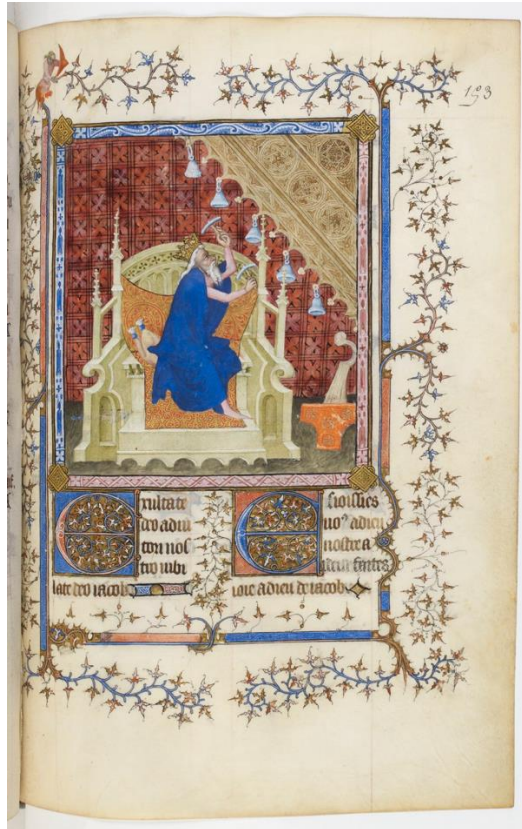 Exultate
deo adiu
tori nos
tro iubi
late deo iacob
Esioissies
uo⁹ adieu
nostre a
faites
ioie adieu de iacob